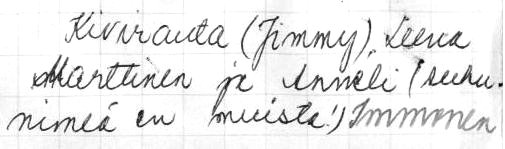 Kivirauta (Jimmy), Leena
Marttinen ja Anneli (suku-
nimeä en muista!) Immonen